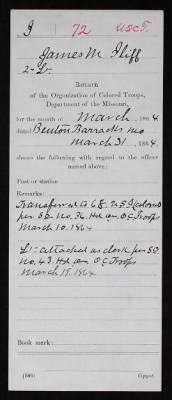 I 72 USCT.
James M Iliff
2 Lt.
Return
of the Organization of Colored Troops,
Department of the Missouri,
for the month of March, 1864
dated Benton Barracks Mo
March 31, 1864.
shows the following with regard to the officer
named above:
Post or station
Remarks:
Transferred to 68. U.S.I (colored
per S.O. No. 36. Hd qrs. O C Troops
March 10. 1864
Lt. attached as clerk per SO.
no. 43. Hd qrs O C Troops
March 19. 1864
Book mark:
(586)
Copyist.